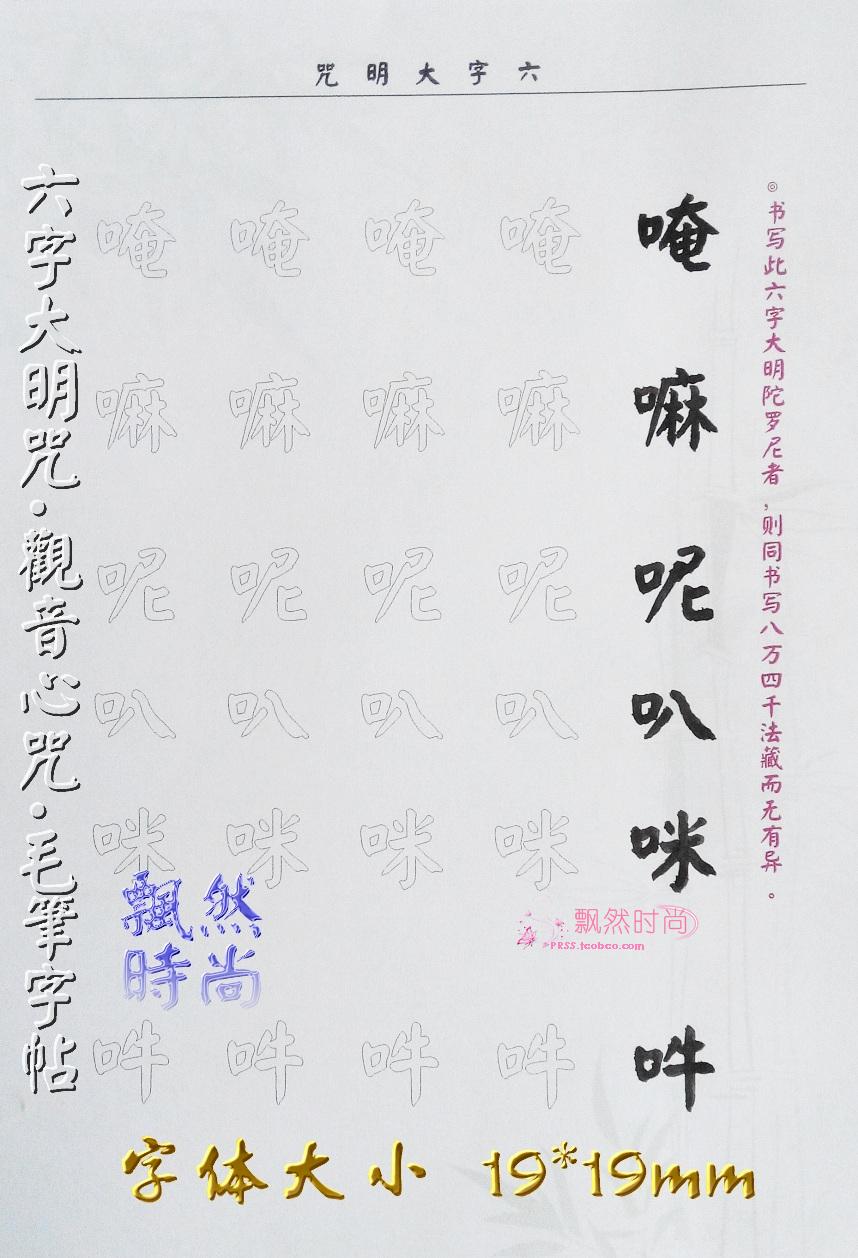 六字大明咒
◎书写此六字大明陀罗尼者，则同书写八万四千法藏而无有异。
唵嘛呢叭咪吽
唵嘛呢叭咪吽
唵嘛呢叭咪吽
唵嘛呢叭咪吽
唵嘛呢叭咪吽
六字大明咒·觀音心咒·毛筆字帖
飘然时尚
PRSS.taobao.com
飄然
時尚
字体大小 19*19mm